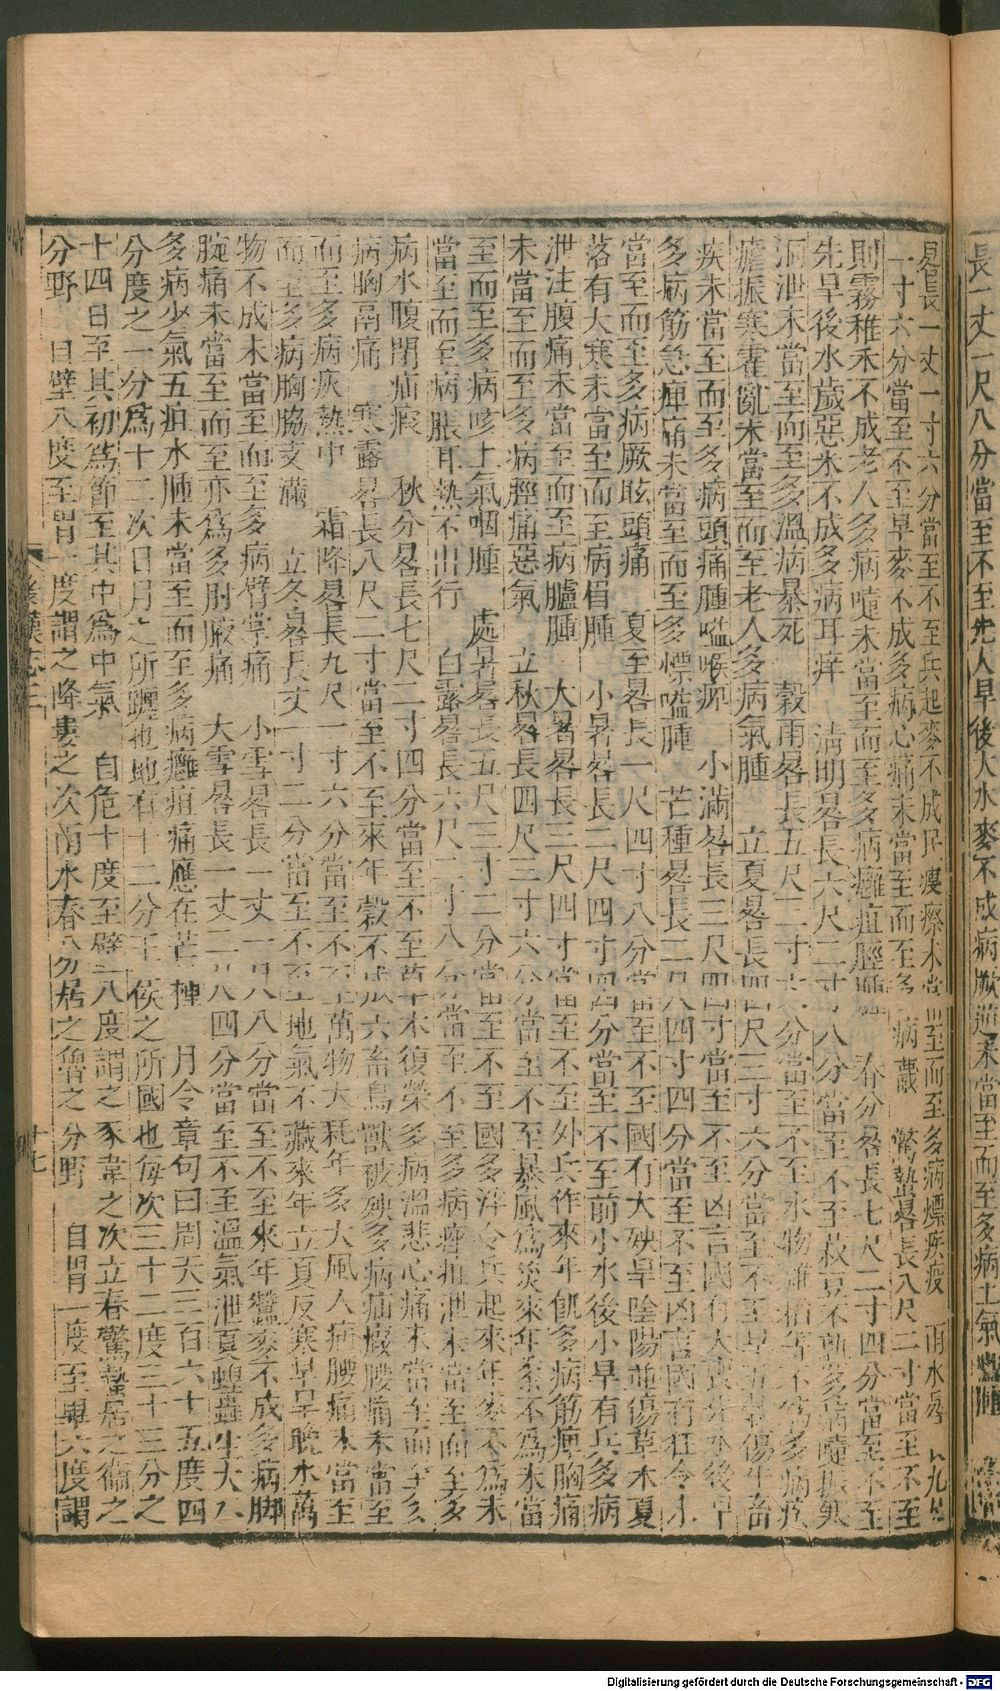 長一丈一尺八分當至不至先人旱後大水麥不成病厥逆未當至而至多病上氣
晷長一丈一寸六分當至不至兵起麥不成民疲瘵未當至而至多病熛疾疫 雨水晷長九尺
一寸六分當至不至旱麥不成多病心痛未當至而至多病蠶 驚蟄晷長八尺二寸當至不至
則霧稚禾不成老人多病嚏未當至而至多病癰疽脛腫 春分晷長七尺二寸四分當至不至
先旱後水歲惡米不成多病耳痒 清明晷長六尺二寸八分當至不至菽豆不熟多病嚏振寒
洞泄未當至而至多溫病暴死 穀雨晷長五尺三寸六分當至不至水物雜稻等不為多病疾
瘧振寒霍亂未當至而至老人多病氣腫 立夏晷長四尺三寸六分當至不至旱五穀傷牛畜
疾未當至而至多病頭痛腫嗌喉痹 小滿晷長三尺四寸當至不至凶言國有大喪先水後旱
多病筋急痺痛未當至而至多熛嗌腫 芒種晷長二尺四寸四分當至不至凶言國有狂令未
當至而至多病厥眩頭痛 夏至晷長一尺四寸八分當至不至國有大殃旱陰陽並傷草木夏
落有大寒未當至而至病眉腫 小暑晷長二尺四寸四分當至不至前小水後小旱有兵多病
泄注腹痛未當至而至病臚腫 大暑晷長三尺四寸當至不至外兵作來年飢多病筋痺胸痛
未當至而至多病脛痛惡氣 立秋晷長四尺三寸六分當至不至暴風為災來年黍不為未當
至而至多病咳上氣咽腫 處暑晷長五尺三寸二分當至不至國多浮令兵起來年麥不為未
當至而至病脹耳熱不出行 白露晷長六尺二寸八分當至不至多病痤疽泄未當至而至多
病水腹閉疝瘕 秋分晷長七尺二寸四分當至不至草木復榮多病溫悲心痛未當至而至多
病胸鬲痛 寒露晷長八尺二寸當至不至來年穀不成六畜鳥獸被殃多病疝瘕腰痛未當至
而至多病疢熱中 霜降晷長九尺一寸六分當至不至萬物大耗年多大風人病腰痛未當至
而至多病胸脇支滿 立冬晷長丈一寸二分當至不至地氣不藏來年立夏反寒早旱晚水萬
物不成未當至而至多病臂掌痛 小雪晷長一丈一尺八分當至不至來年蠶麥不成多病脚
腕痛未當至而至亦為多肘腋痛 大雪晷長一丈二尺四分當至不至溫氣泄夏蝗蟲生大水
多病少氣五疸水腫未當至而至多病癰疽痛應在芒種 月令章句曰周天三百六十五度四
分度之一分為十二次日月之所躔也地有十二分王侯之所國也每次三十二度三十三分之
十四日至其初為節至其中為中氣 自危十度至壁八度謂之豕韋之次立春驚蟄居之衞之
分野 自壁八度至胃一度謂之降婁之次雨水春分居之魯之分野 自胃一度至畢六度謂
後漢志三
十七
Digitalisierung gefördert durch die Deutsche Forschungsgemeinschaft - DFG